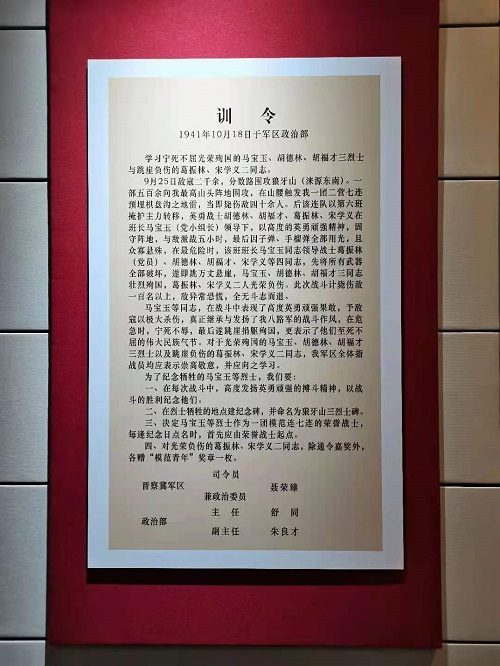 训 令
1941年10月18日于军区政治部
学习宁死不屈光荣殉国的马宝玉、胡德林、胡福才三烈士
与跳崖负伤的葛振林、宋学义二同志。
9月25日敌寇二千余，分数路围攻狼牙山（涞源东南）。一
部五百余向我最高山头阵地围攻，在山腰触发我一团二营七连
预埋棋盘沟之地雷，当即毙伤敌四十余人。后该连队以第六班
掩护主力转移，英勇战士胡德林、胡福才、葛振林、宋学义在
班长马宝玉（党小组长）领导下，以高度的英勇顽强精神，固
守阵地，与敌激战五小时，最后因子弹、手榴弹全部用光，且
众寡悬殊，在最危险时，该班班长马宝玉同志领导战士葛振林
（党员）、胡德林、胡福才、宋学义等四同志，先将所有武器
全部破坏，遂即跳万丈悬崖，马宝玉、胡德林、胡福才三同志
壮烈殉国，葛振林、宋学义二人光荣负伤。此次战斗计毙伤敌
一百名以上，敌异常恐慌，全无斗志而退。
马宝玉等同志，在战斗中表现了高度英勇顽强果敢，予敌
寇以极大杀伤，真正继承与发扬了我八路军的战斗作风，在危
急时，宁死不辱，最后遂跳崖捐躯殉国，更表示了他们至死不
屈的伟大民族气节。对于光荣殉国的马宝玉、胡德林、胡福才
三烈士以及跳崖负伤的葛振林、宋学义二同志，我军区全体指
战员均应表示崇高敬意，并应向之学习。
为了纪念牺牲的马宝玉等烈士，我们要：
一、在每次战斗中，高度发扬英勇顽强的搏斗精神，以战
斗的胜利纪念他们。
二、在烈士牺牲的地点建纪念碑，并命名为狼牙山三烈士碑。
三、决定马宝玉等烈士作为一团模范连七连的荣誉战士，
每逢纪念日点名时，首先应由荣誉战士起点。
四、对光荣负伤的葛振林、宋学义二同志，除通令嘉奖外，
各赠“模范青年”奖章一枚。
司令员
晋察冀军区 聂荣臻
兼政治委员
主 任 舒 同
政治部
副主任 朱良才